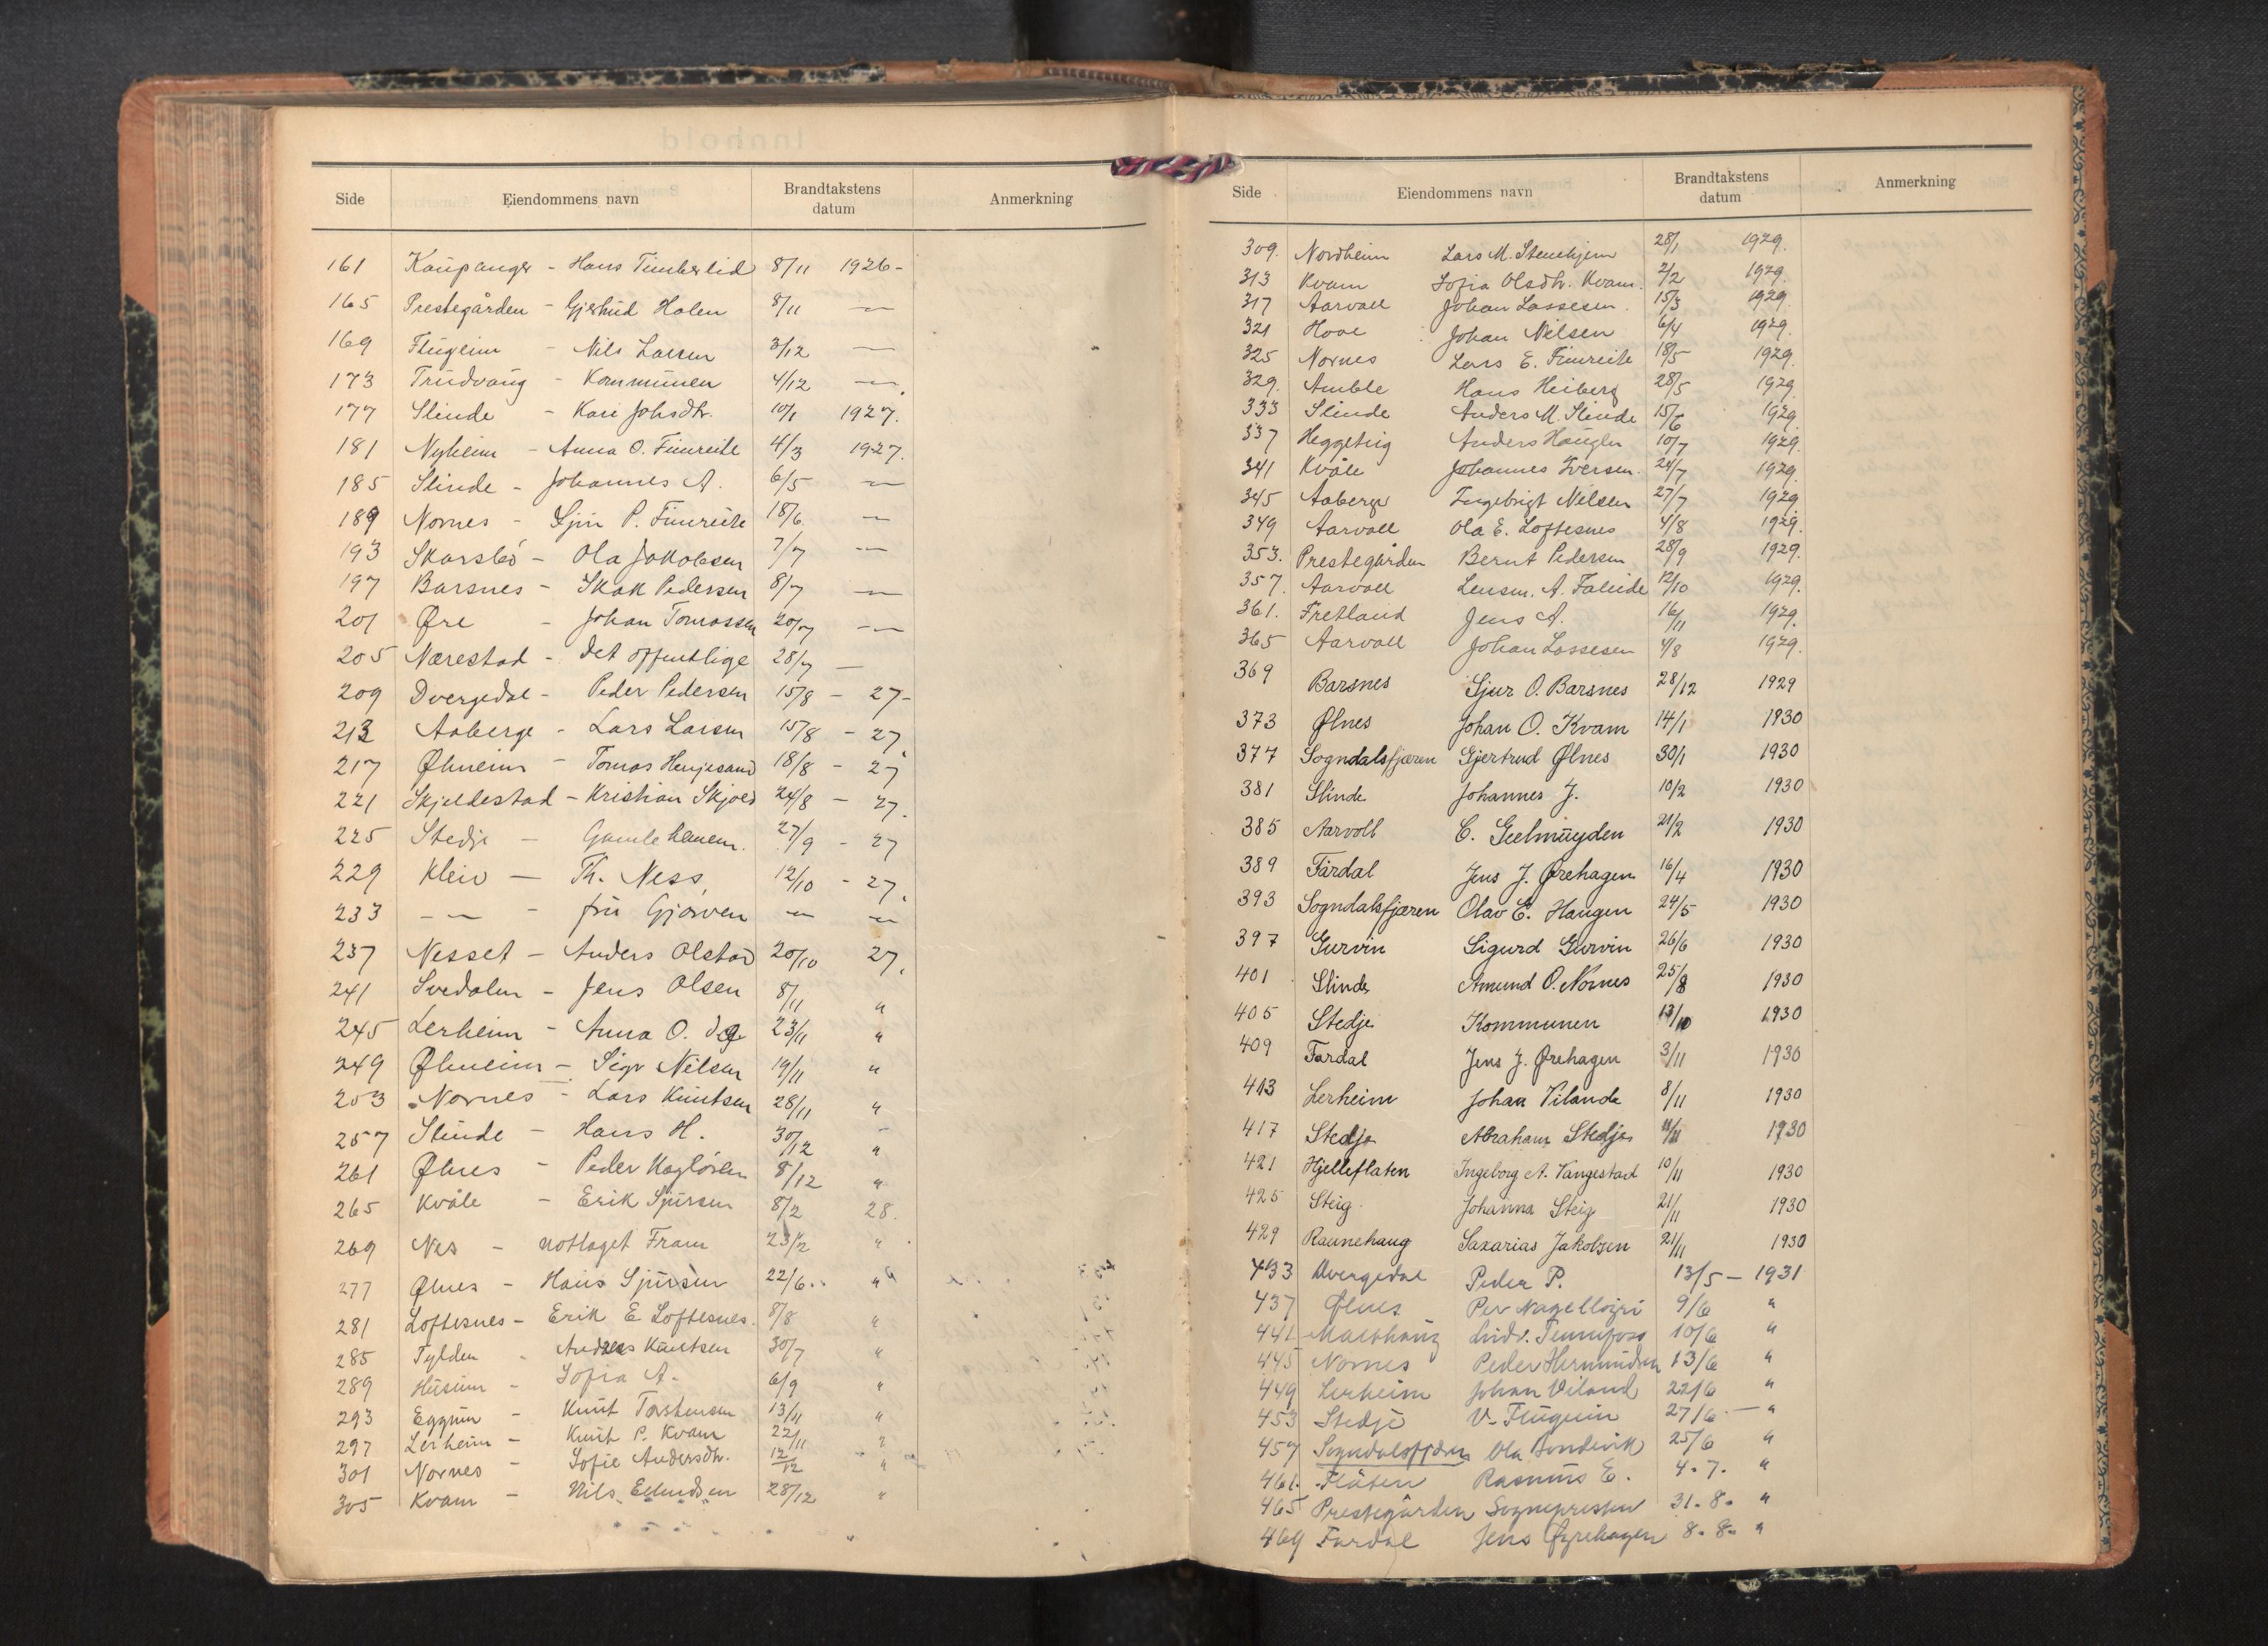 Side Eiendommens navn Brandtakstens datum Anmerkning
161 Kaupanger - Hans Timberlid 8/11 1926-
165 Prestegården - Gjertrud Holen 8/11 —
169 Flugeim - Nils Larsen 3/12 —
173 Trudvang - Kommunen 4/12 —
177 Slinde - Kari Johsdtr. 10/1 1927.
181 Nyheim - Anna O. Fimreite 4/3 1927.
185 Slinde - Johannes A. 6/5 —
189 Nornes - P. Fimreite 18/6 —
193 - Ola Jakobsen 7/7 —
197 Barsnes - Skak Pedersen 8/7 —
201 Øre - Johan Tomassen 20/7 —
205 Nærestad - det offentlige 28/7 —
209 Dvergedal - Peder Pedersen 15/8 - 27-
213 Aaberge - Lars Larsen 15/8 - 27.
217 Ølmeim - Tomas Henjesand 18/8 - 27
221 Skjeldestad - Kristian Skjeld 24/8 - 27.
225 Stedje - Gamle 27/9 - 27
229 Kleiv — Th. Ness 12/10 - 27.
233 - — - fru Gjørven — —
237 Nesset - Anders Olstad 20/10 27.
241 Svedalen - Jens Olsen 8/11 "
245 Lerheim - Anna O. 23/11 "
249 Ølmeim - Sigr Nilsen 19/11 "
253 Nornes - Lars Knutsen 28/11 "
257 Slinde - Hans H. 30/12 "
261 Ølnes - Peder 8/12 "
265 Kvåle - Erik Sjursen 8/2 28.
269 Nes - notlaget Fram 23/2 "
277 Ølnes - Hans Sjursen 22/6. "
281 Loftesnes - Erik E Loftesnes. 8/8 "
285 Tylden - Andreas Knutsen 30/7 "
289 Husum - Sofia A. 6/9 "
293 Eggum - Knut Torstensen 13/11 "
297 Lerheim - Knut P. Kvam 22/11 "
301 Nornes - Sofie Andersdtr. 12/12 "
305 Kvam - Nils Erlendsen 28/12 "
Side Eiendommens navn Brandtakstens datum Anmerkning
309. Nordheim Lars M. Stenehjem 28/1 1929.
313 Kvam Sofia Olsdtr. Kvam. 2/2 1929.
317 Aarvoll Johan Lassesen. 15/3 1929.
321 Hove Johan Nilsen 6/4 1929.
325 Nornes Lars E. Fimreite 18/5 1929.
329. Amble Hans Heiberg 28/5 1929
333 Slinde Anders M. Slinde 15/6 1929.
337 Heggetvig Anders Haugen 10/7 1929.
341 Kvåle Johannes Iversen. 24/7 1929.
345 Aaberge Ingebrigt Nilsen 27/7 1929
349 Aarvoll Ola E. Loftesnes 4/8 1929.
353. Prestegården Bernt Pedersen 28/9 1929.
357. Aarvoll Lensm. A. Faleide 12/10 1929.
361. Fretland Jens A. 16/11 1929.
365 Aarvoll Johan Lassesen 4/8 1929.
369 Barsnes Sjur O. Barsnes 28/12 1929
373 Ølnes Johan O. Kvam 14/1 1930
377 Sogndalsfjæren Gjertrud Ølnes 30/1 1930
381 Slinde Johannes J. 10/2 1930
385 Aarvoll C. Geelmuyden 21/2 1930
389 Fardal Jens J. Ørehagen 16/4 1930
393 Sogndalsfjæren Olav E. Haugen 24/5 1930
397 Gurvin Sigurd Gurvin 26/6 1930
401 Slinde Amund O. Nornes 25/8 1930
405 Stedje Kommunen 13/10 1930
409 Fardal Jens J. Ørehagen 3/11 1930
413 Lerheim Johan Vilande 8/11 1930
417 Stedje Abraham Stedje 11/11 1930
421 Hjelleflaten Ingeborg A. Vangestad 10/11 1930
425 Steig Johanna Steig 21/11 1930
429 Raunehaug Saxarias Jakobsen 21/11 1930
433 Dvergedal Peder P. 13/5 - 1931
437 Ølnes Per 9/6 "
441 Ludv. 10/6 "
445 Nornes Peder Hermundsen 13/6 "
449 Lerheim Johan Viland 22/6 "
453 Stedje V. Flugeim 27/6 - "
457 Sogndalsfjæren Ola Bondevik 25/6 "
461. Flåten Rasmus E. 4.7. "
465 Prestegården Sognepresten 31.8. "
469 Fardal Jens Øyrehagen 8.8. "